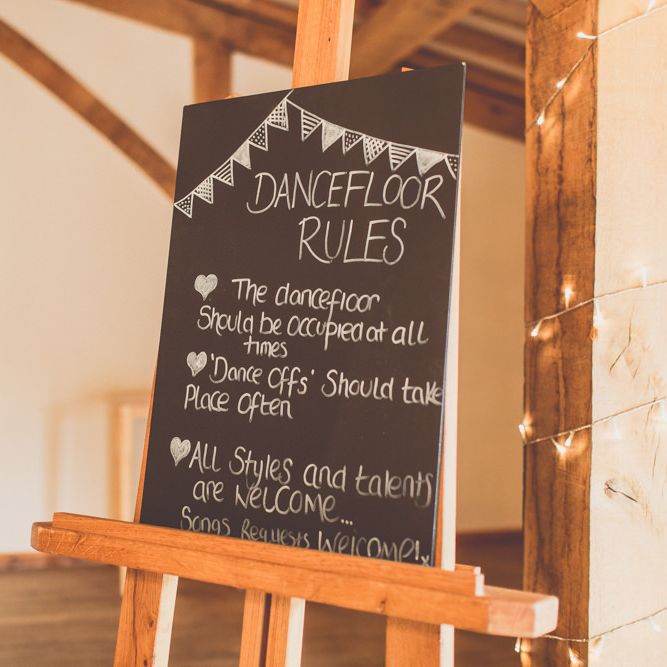 DANCEFLOOR
RULES
The dancefloor
Should be occupied at all
times
'Dance Offs' Should take
Place Often
All Styles and talents
are welcome...
Songs Requests Welcome!x